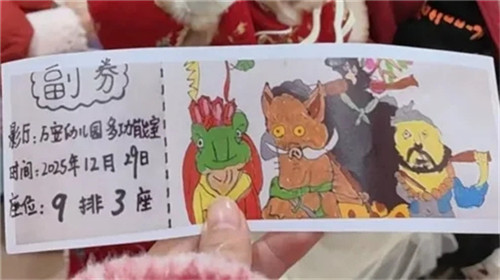 副券
影厅：万安幼儿园多功能室
时间：2025年12月29日
座位：9排3座